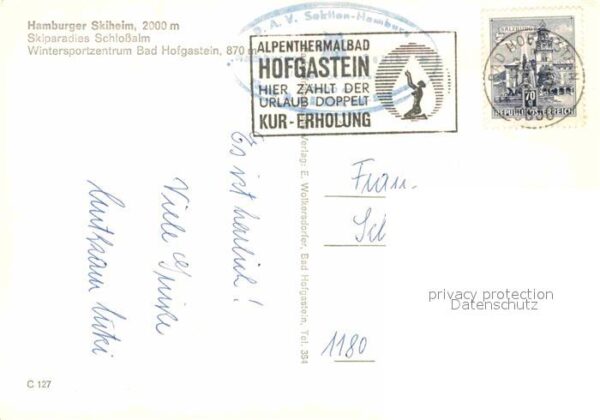 Hamburger Skiheim, 2000 m
Skiparadies Schloßalm
Wintersportzentrum Bad Hofgastein, 870 m
D. A. V. Sektion-Hamburg
ALPENTHERMALBAD
HOFGASTEIN
HIER ZÄHLT DER
URLAUB DOPPELT
KUR-ERHOLUNG
BAD HOFGASTEIN
SALZBURG
70
REPUBLIK ÖSTERREICH
Es ist herrlich!
Viele Grüße
Verlag: E. Wolkersdorfer, Bad Hofgastein, Tel. 384
Frau
Sch
1180
privacy protection
Datenschutz
C 127